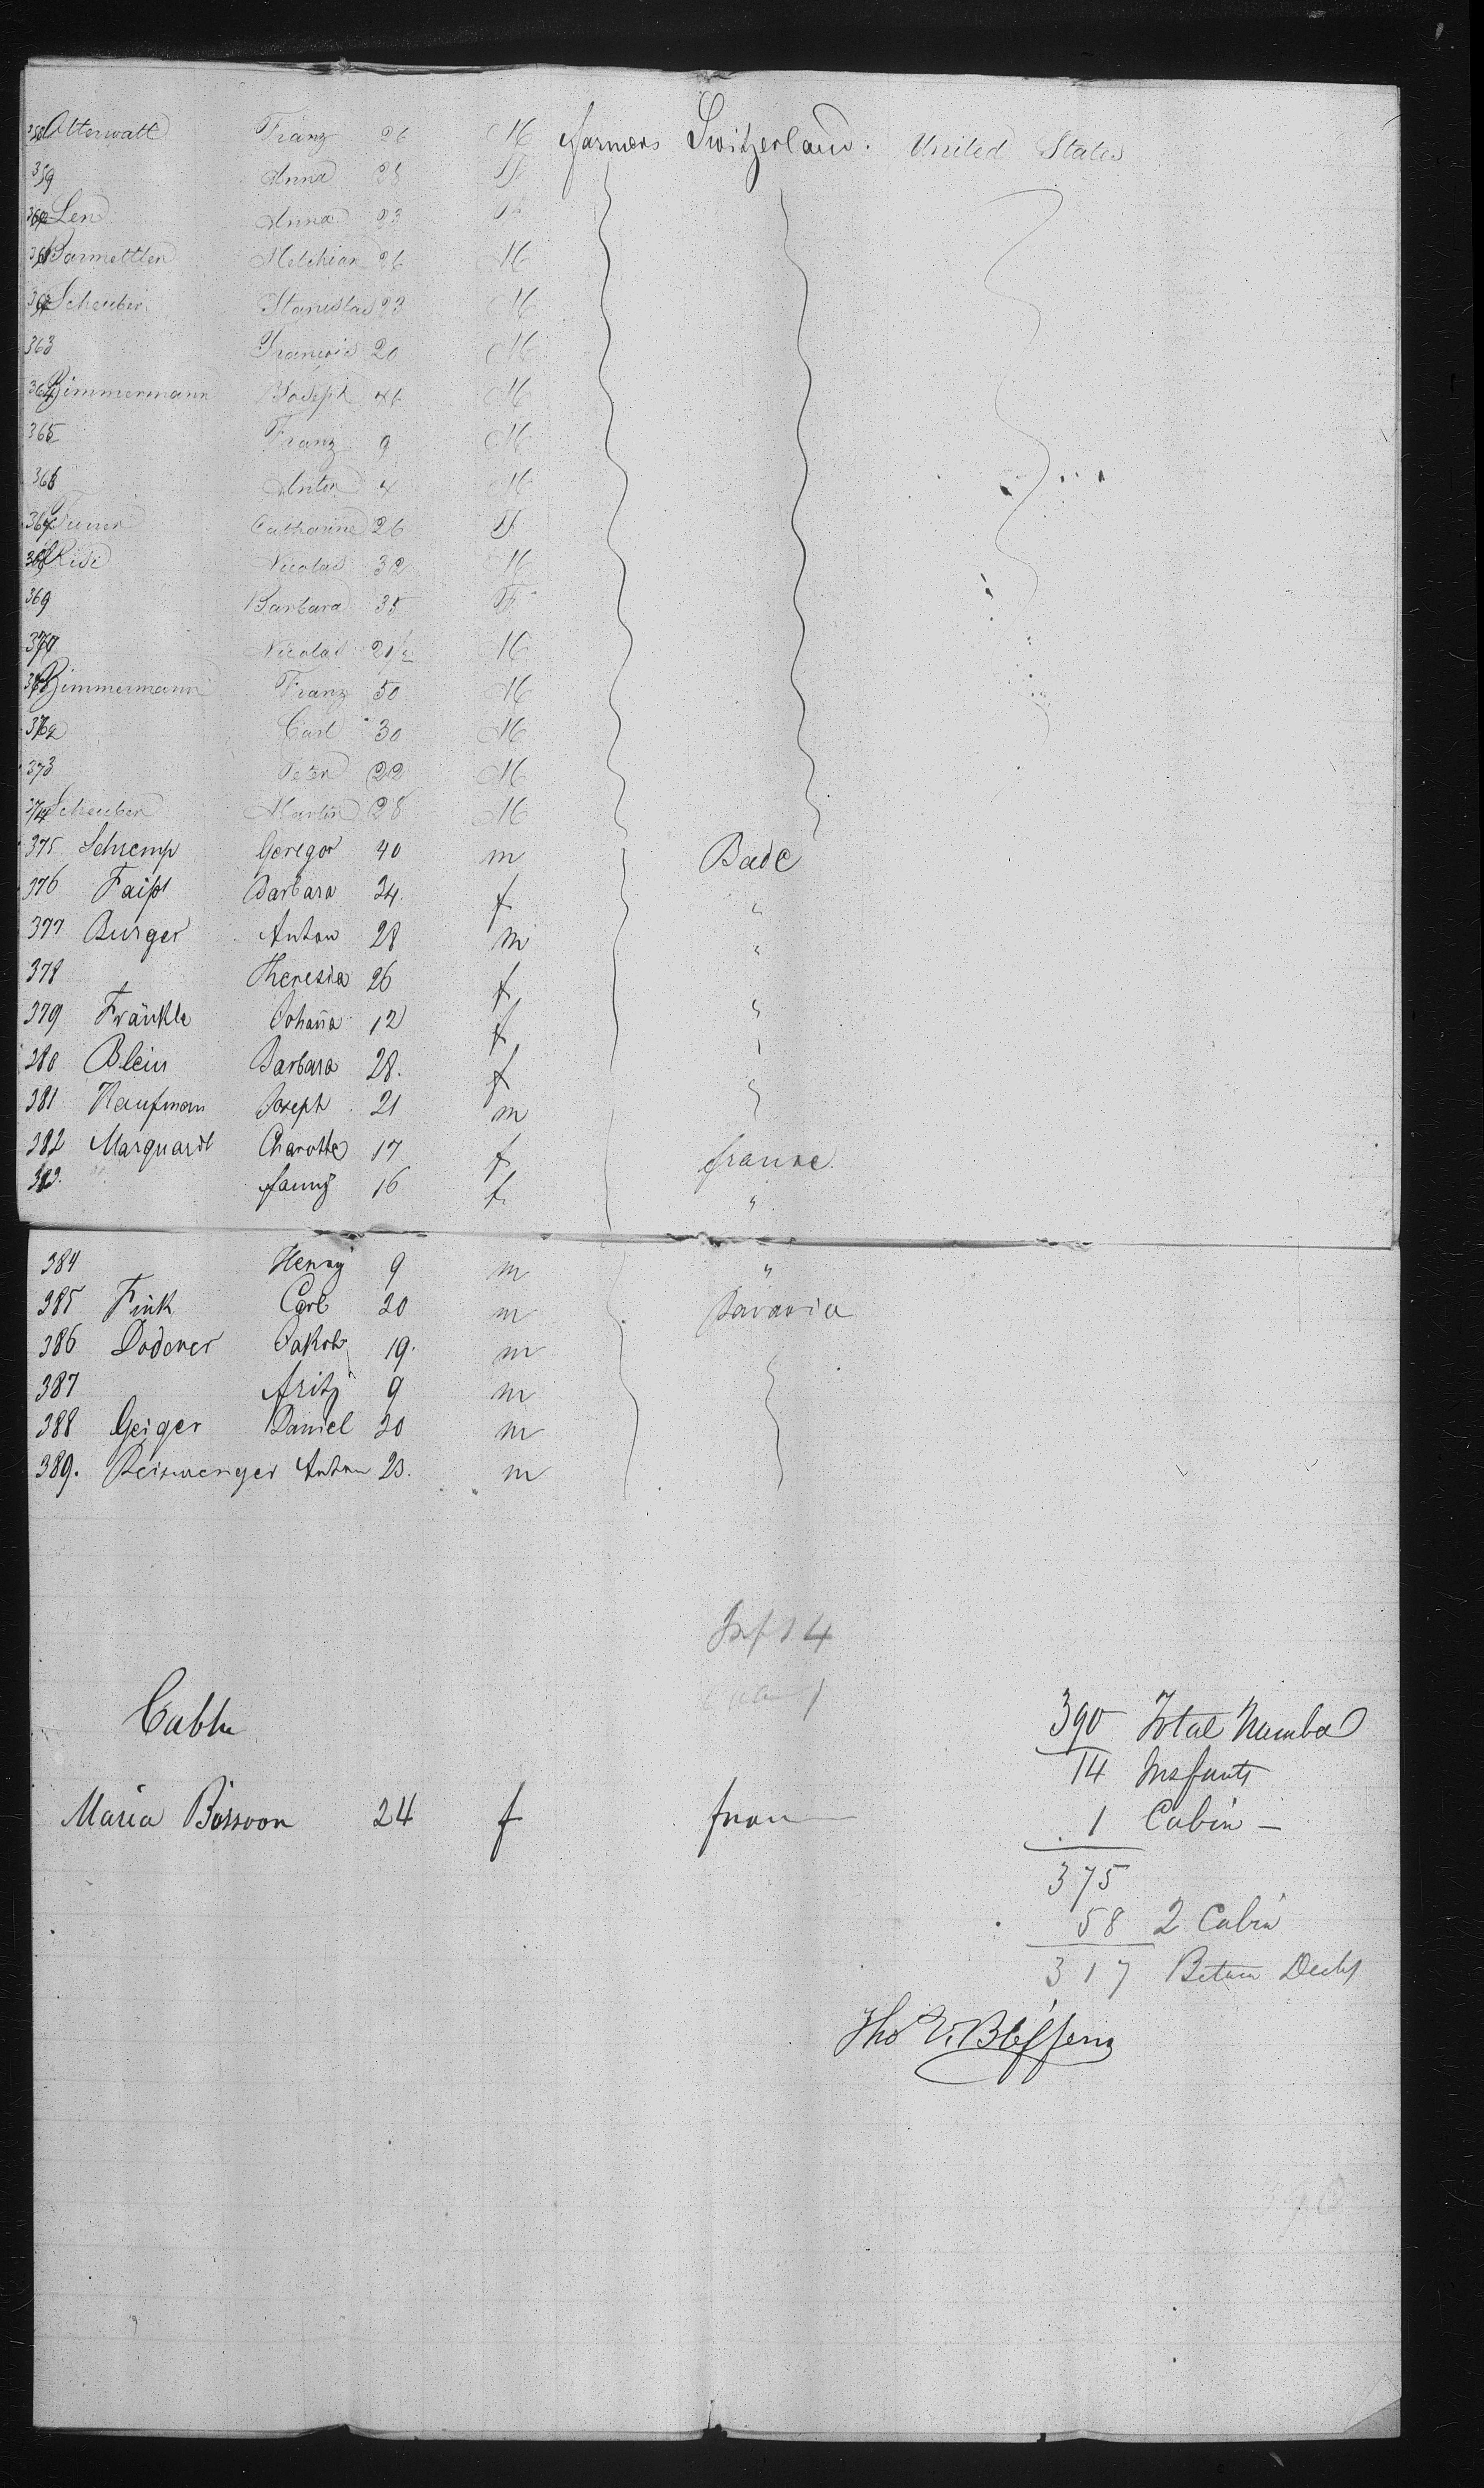 358 Atterwatt Franz 26 M farmers Switzerland. United States
359 Anna 28 F
360 Len Anna 23 F
361 Barmettler Melchior 26 M
362 Scheuber Stanislas 23 M
363 Francois 20 M
364 Zimmermann Joseph 46 M
365 Franz 9 M
366 Anton 4 M
367 Furrer Catharine 26 F
368 Risi Nicolas 32 M
369 Barbara 35 F
370 Nicolas 2 1/2 M
371 Zimmermann Franz 50 M
372 Carl 30 M
373 Peter 22 M
374 Scheuber Martin 28 M
375 Schremp Geregor 40 m Bade
376 Faißt Barbara 34. f "
377 Burger Anton 28 m "
378 Theresia 26 f
379 Fränkle Johaña 12 f "
380 Blein Barbara 28. f
381 Kaufmann Joseph 21 m
382 Marquardt Charotte 17 f franke
383. " fanny 16 f. "
384 Henry 9 m "
385 Fink Carl 20 m Bavaria
386 Doderer Jakob 19. m
387 fritz 9 m
388 Geiger Daniel 20 m
389. Beiswenger Anton 23. m
Inft 14
1
390 Total Number
14 Infants
Maria 24 f fran
1 Cabin —
375
58 2 Cabin
317 Betwn Decks
Tho V.
390